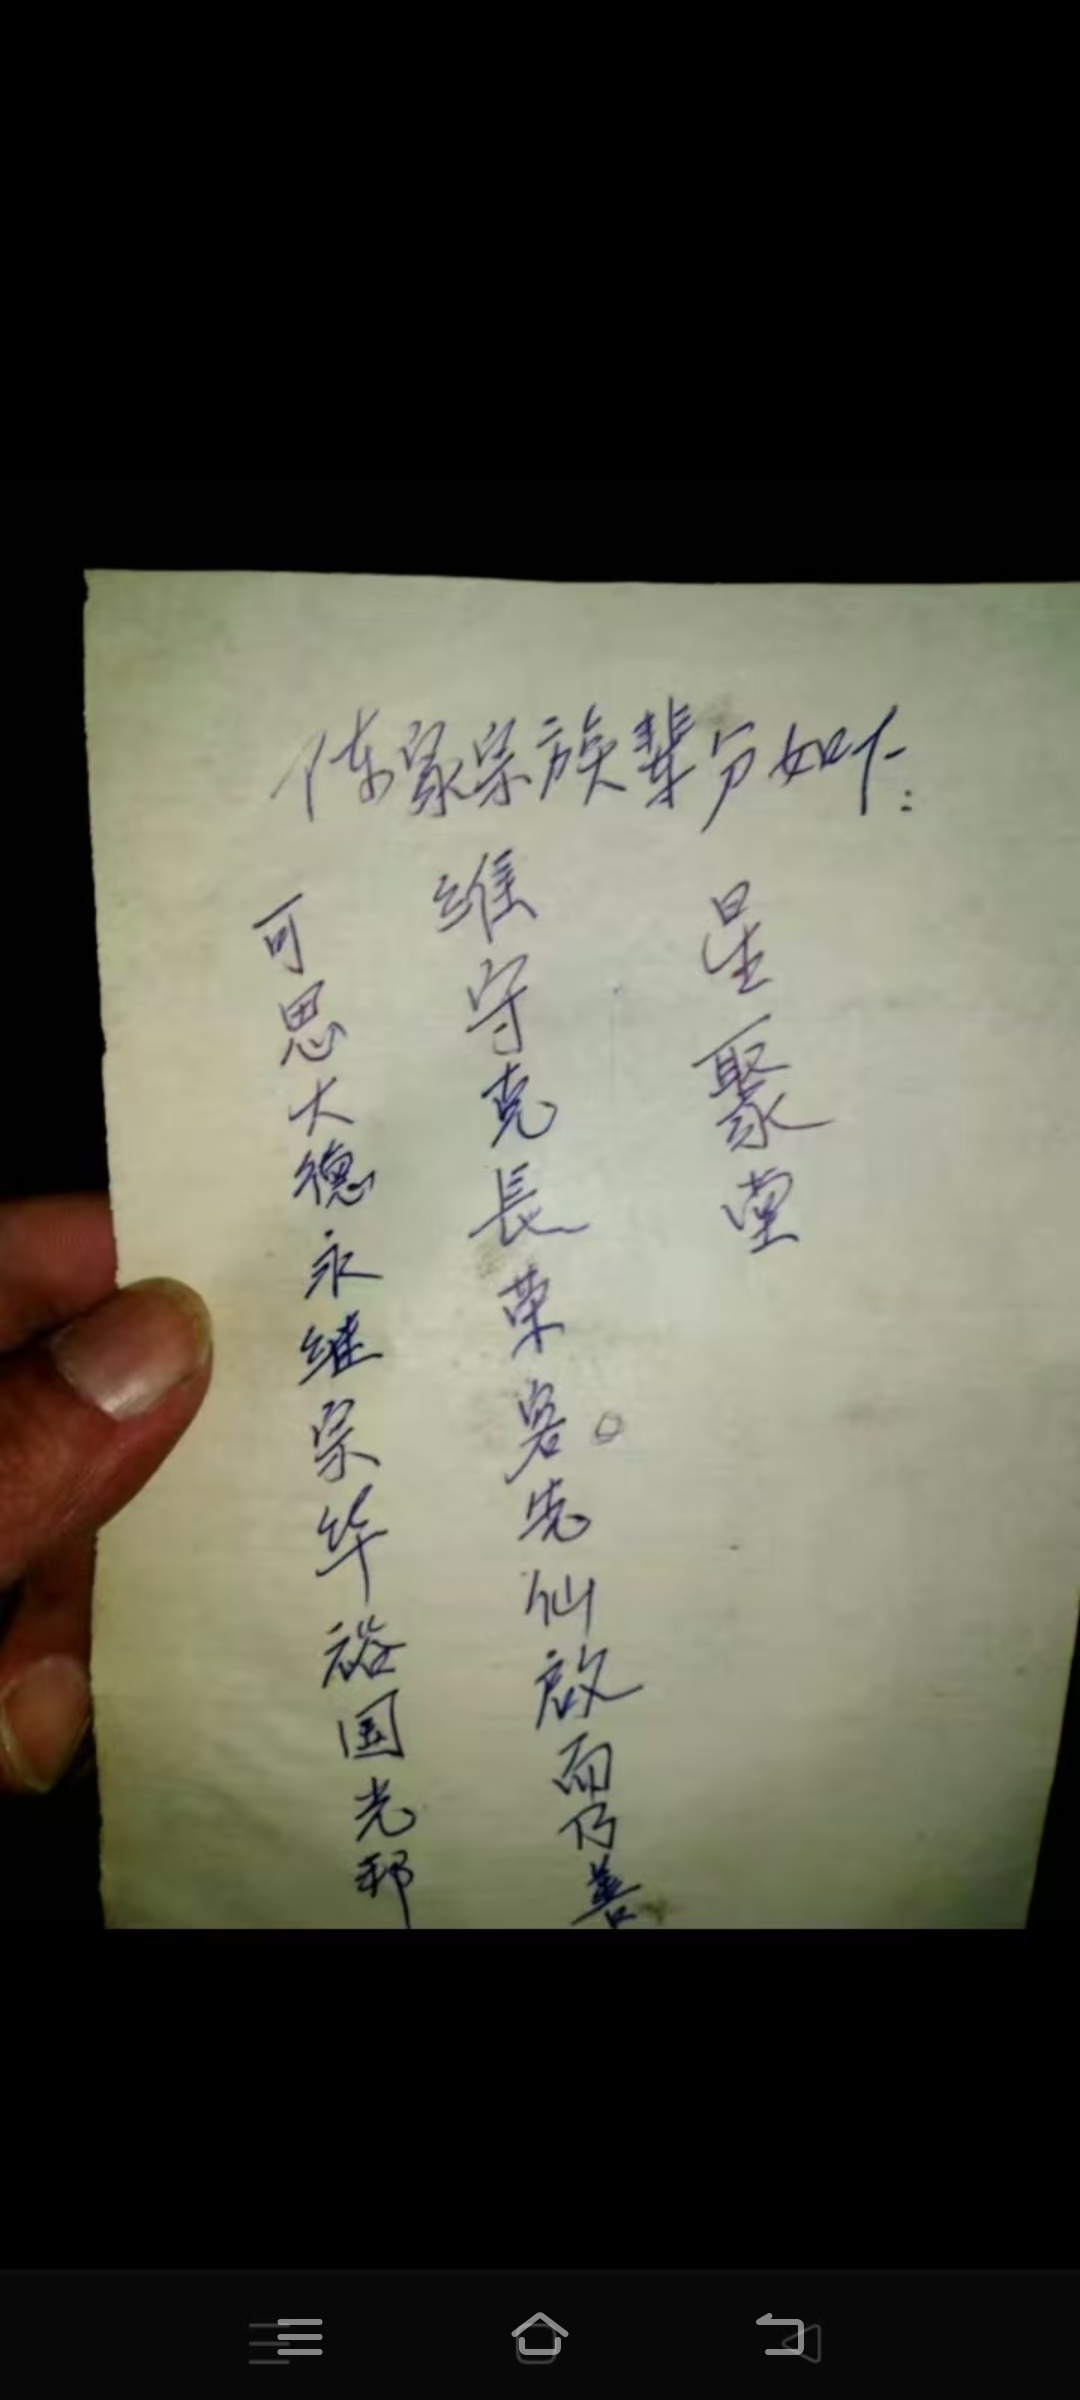 陈家宗族辈分如下:
星聚堂
维守克長荣
先仙啟而乃善
可思大德永继宗华裕国光邦